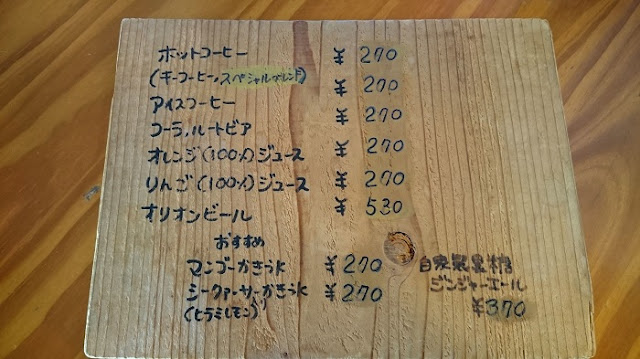 ホットコーヒー ¥ 270
(キーコーヒースペシャルブレンド) ¥ 270
アイスコーヒー ¥ 270
コーラ、ルートビア ¥ 270
オレンジ(100%)ジュース ¥ 270
りんご(100%)ジュース ¥ 270
オリオンビール ¥ 530
おすすめ
マンゴーかき氷 ¥270
シークァーサーかき氷 ¥270
(ヒラミレモン)
自家製黒糖
ジンジャーエール
¥370